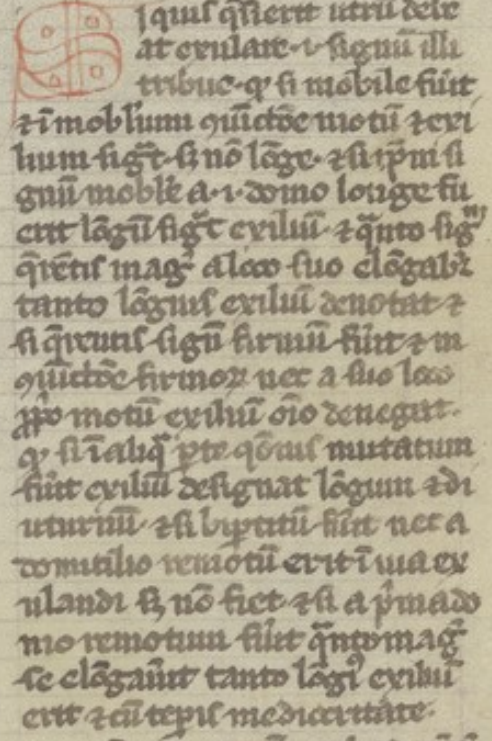 Si quis q̄sierit utrū debe
at exulare · i · signū illi
tribue · qͥ si mobile fūit
⁊ ī moblium ꝯiūctōe motū ⁊ exi
lium sigᷓt · sꝫ nō lōge · ⁊ si pͥm si
gnū moble a · i · domo longe fu
erit lōgū sigᷓt exiliū · ⁊ qᷓnto sigᷓ
q̄rētis magͥ a loco suo elōgabr̄
tanto lōgius exiliū denotat ⁊
si q̄rentis signū firmū fūit ⁊ in
ꝯiūctōe firmoꝝ nec a suo loco
motū exiliū oīo denegat ·
qͥ si ī aliqͣ ꝑte mutatum
fūit exiliū designat lōgum ⁊ di
uturnū · ⁊ si biꝑtitū fūit nec a
domicilio remotū erit ī uia ex
ulandi sꝫ nō fiet ⁊ si a pͥma do
mo remotum fūit qᷓnto magͥ
se elōgauīt tanto lōgiꝰ exiliū
erit ⁊ cū tēpis mediocritate ·